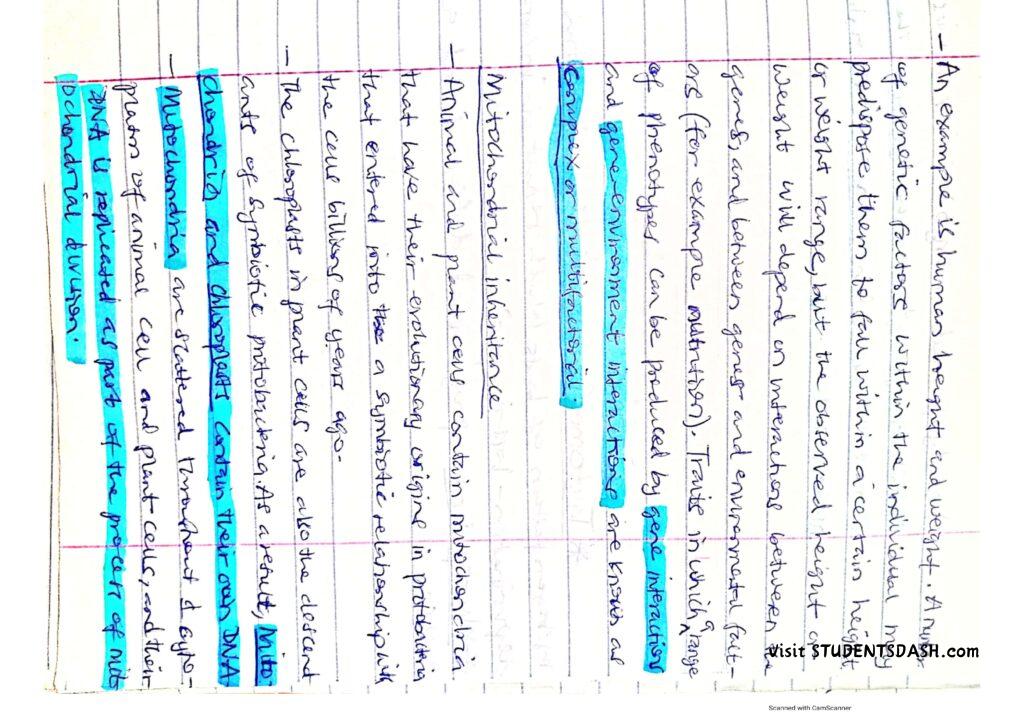 - An example is human height and weight. A number
of genetic factors within the individual may
predispose them to fall within a certain height
or weight range, but the observed height or
weight will depend on interactions between the
genes, and between genes and environmental fact-
ors (for example nutrition). Traits in which a range
of phenotypes can be produced by gene interactions
and gene-environment interactions are known as
complex or multifactorial.
Mitochondrial inheritance
- Animal and plant cells contain mitochondria
that have their evolutionary origins in protobacteria
that entered into a symbiotic relationship with
the cells billions of years ago.
- The chloroplasts in plant cells are also the descend
ants of symbiotic protobacteria. As a result, mito-
chondria and chloroplasts contain their own DNA
- Mitochondria are scattered throughout d cyto-
plasm of animal cell and plant cells, and their
DNA is replicated as part of the process of mit
ochondrial division.
visit STUDENTSDASH.com
Scanned with CamScanner